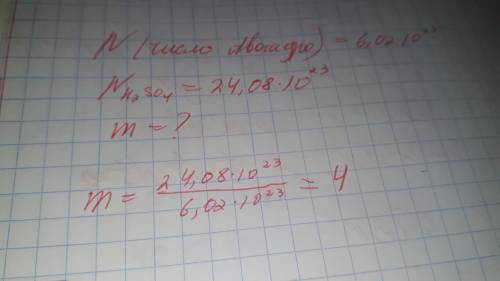 N (число Авогадро) = 6,02·10²³
N H₂SO₄ = 24,08·10²³
m = ?
m = 24,08·10²³ / 6,02·10²³ = 4